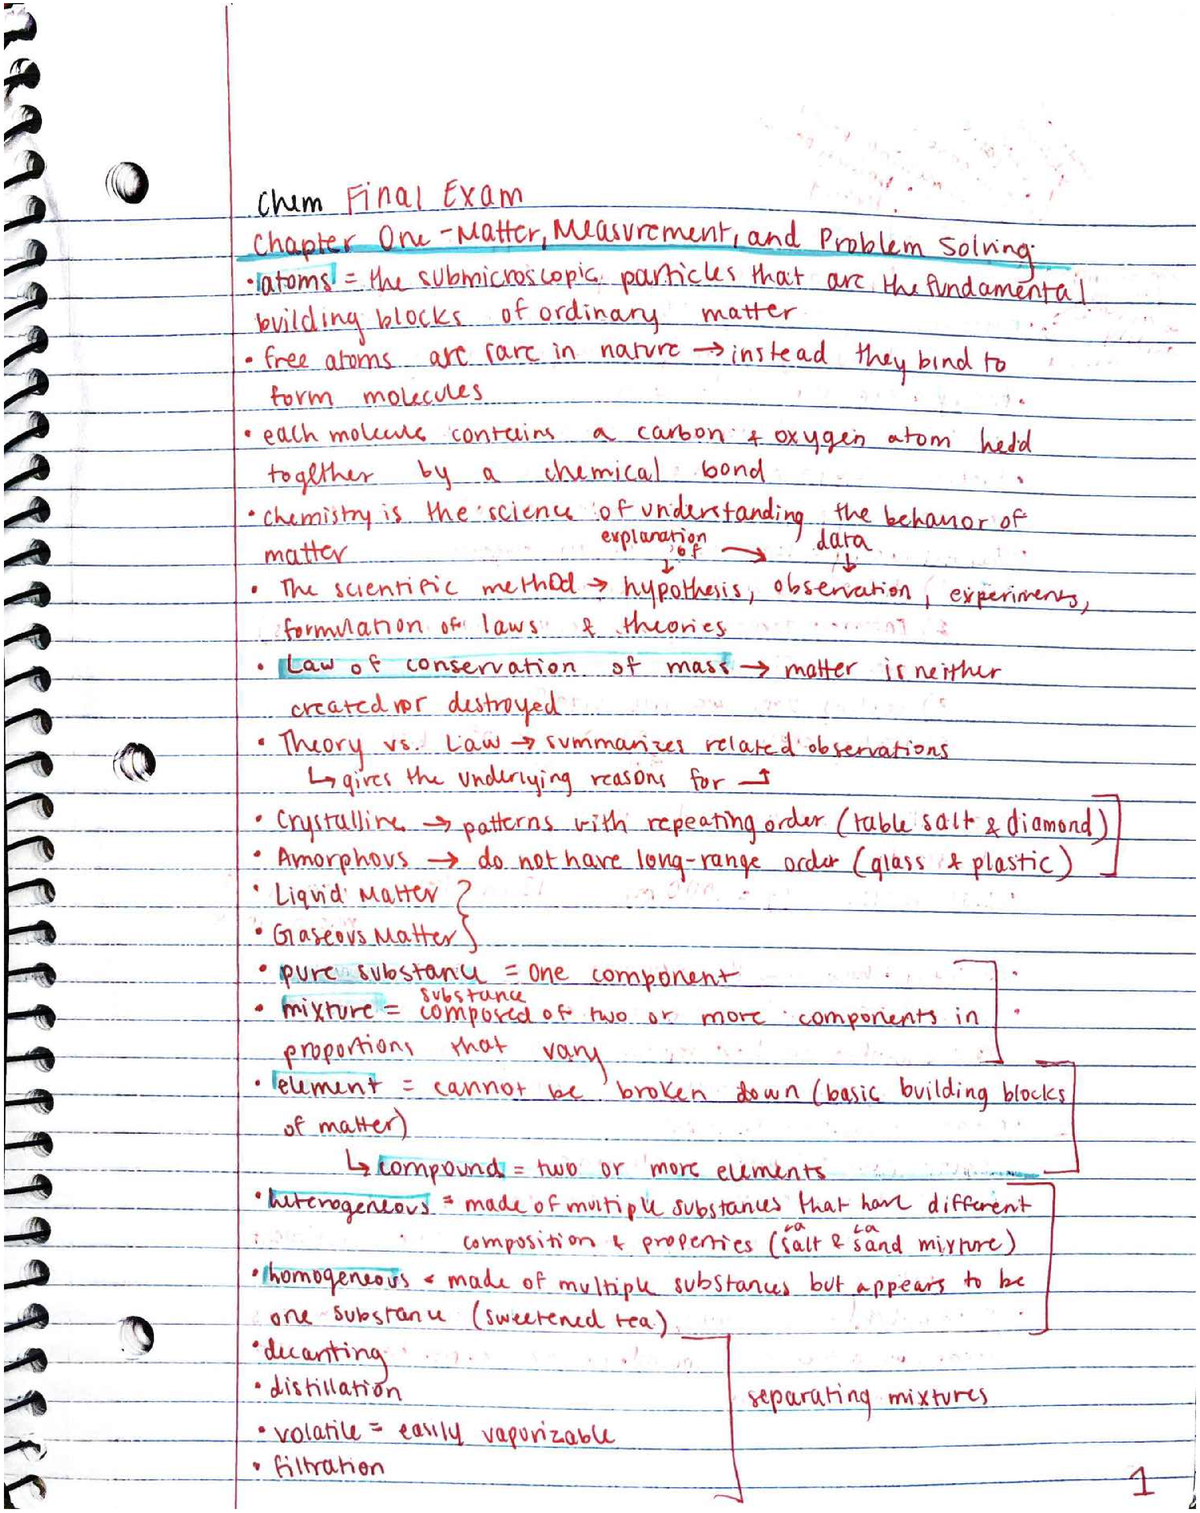 Chem Final Exam
Chapter One - Matter, Measurement, and Problem Solving
• atoms = the submicroscopic particles that are the fundamental
building blocks of ordinary matter
• free atoms are rare in nature → instead they bind to
form molecules
• each molecule contains a carbon & oxygen atom held
together by a chemical bond
• chemistry is the science of understanding the behavior of
matter
explanation of → data
• The scientific method → hypothesis, observation, experiments,
formulation of laws & theories
• Law of conservation of mass → matter is neither
created nor destroyed
• Theory vs. Law → summarizes related observations
↳ gives the underlying reasons for
• Crystalline → patterns with repeating order (table salt & diamond)
• Amorphous → do not have long-range order (glass & plastic)
• Liquid Matter
• Gaseous Matter
• pure substance = one component
substance
• mixture = composed of two or more components in
proportions that vary
• element = cannot be broken down (basic building blocks
of matter)
↳ compound = two or more elements
• heterogeneous = made of multiple substances that have different
composition & properties (salt & sand mixture)
• homogeneous = made of multiple substances but appears to be
one substance (sweetened tea)
• decanting
• distillation
separating mixtures
• volatile = easily vaporizable
• filtration
1